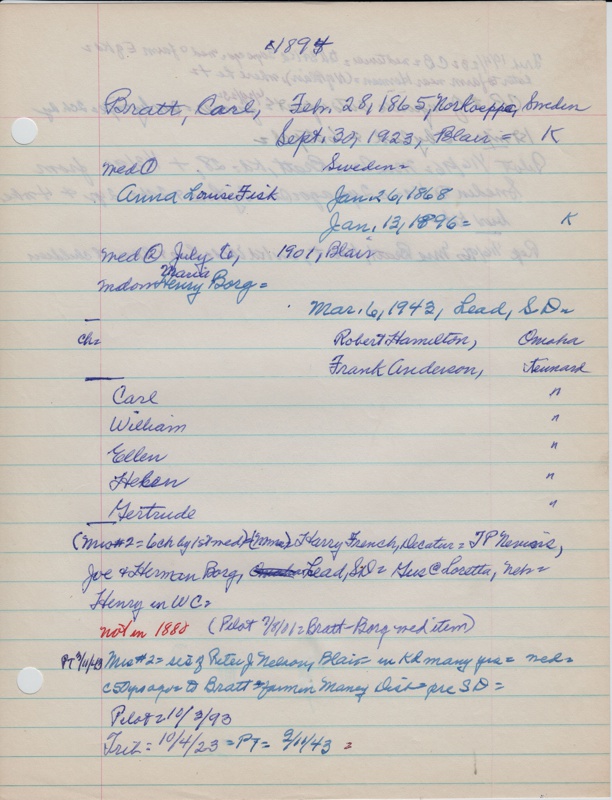 1895
Bratt, Carl, Feb. 28, 1865, Norkoeppe, Sweden
Sept. 30, 1923, Blair = K
med ① Sweden =
Anna Louise Fisk Jan. 26, 1868
Jan. 13, 1896 = K
med ② July 6, 1901, Blair
Maria
mdom Henry Borg =
Mar. 6, 1943, Lead, S.D. =
ch = Robert Hamilton, Omaha
Frank Anderson, Kennard
Carl "
William "
Ellen "
Heken "
Gertrude "
(Mrs #2 = 6 ch by 1st med) Harry French, Decatur = TP
Joe & Herman Borg, Lead, SD = Gus C Loretta, Neb =
Henry in WC =
not in 1880 (Pilot = Bratt-Borg med item)
PT Mrs #2 = sis of Peter J Nelson, Blair = in Kd many yrs = med =
to Bratt = farm in Maney Dist = pre SD =
Pilot = 10/3/93
Trib = 10/4/23 = PT = 3/11/43 =